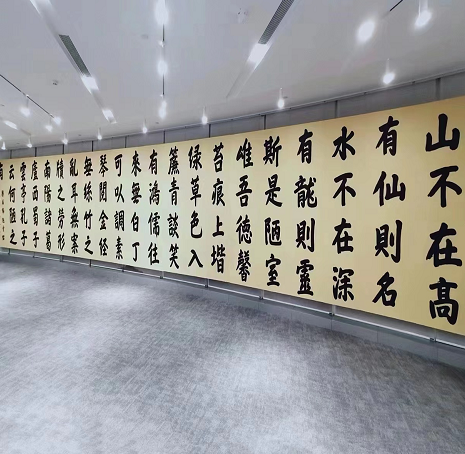 山不在髙
有仙則名
水不在深
有龍則靈
斯是陋室
唯吾德馨
苔痕上堦
绿草色入
簾青談笑
有鴻儒往
來無白丁
可以調素
琴閱金经
無絲竹之
亂耳無案
牘之勞形
南陽諸葛
廬西蜀子
雲亭孔子
云何陋之
有